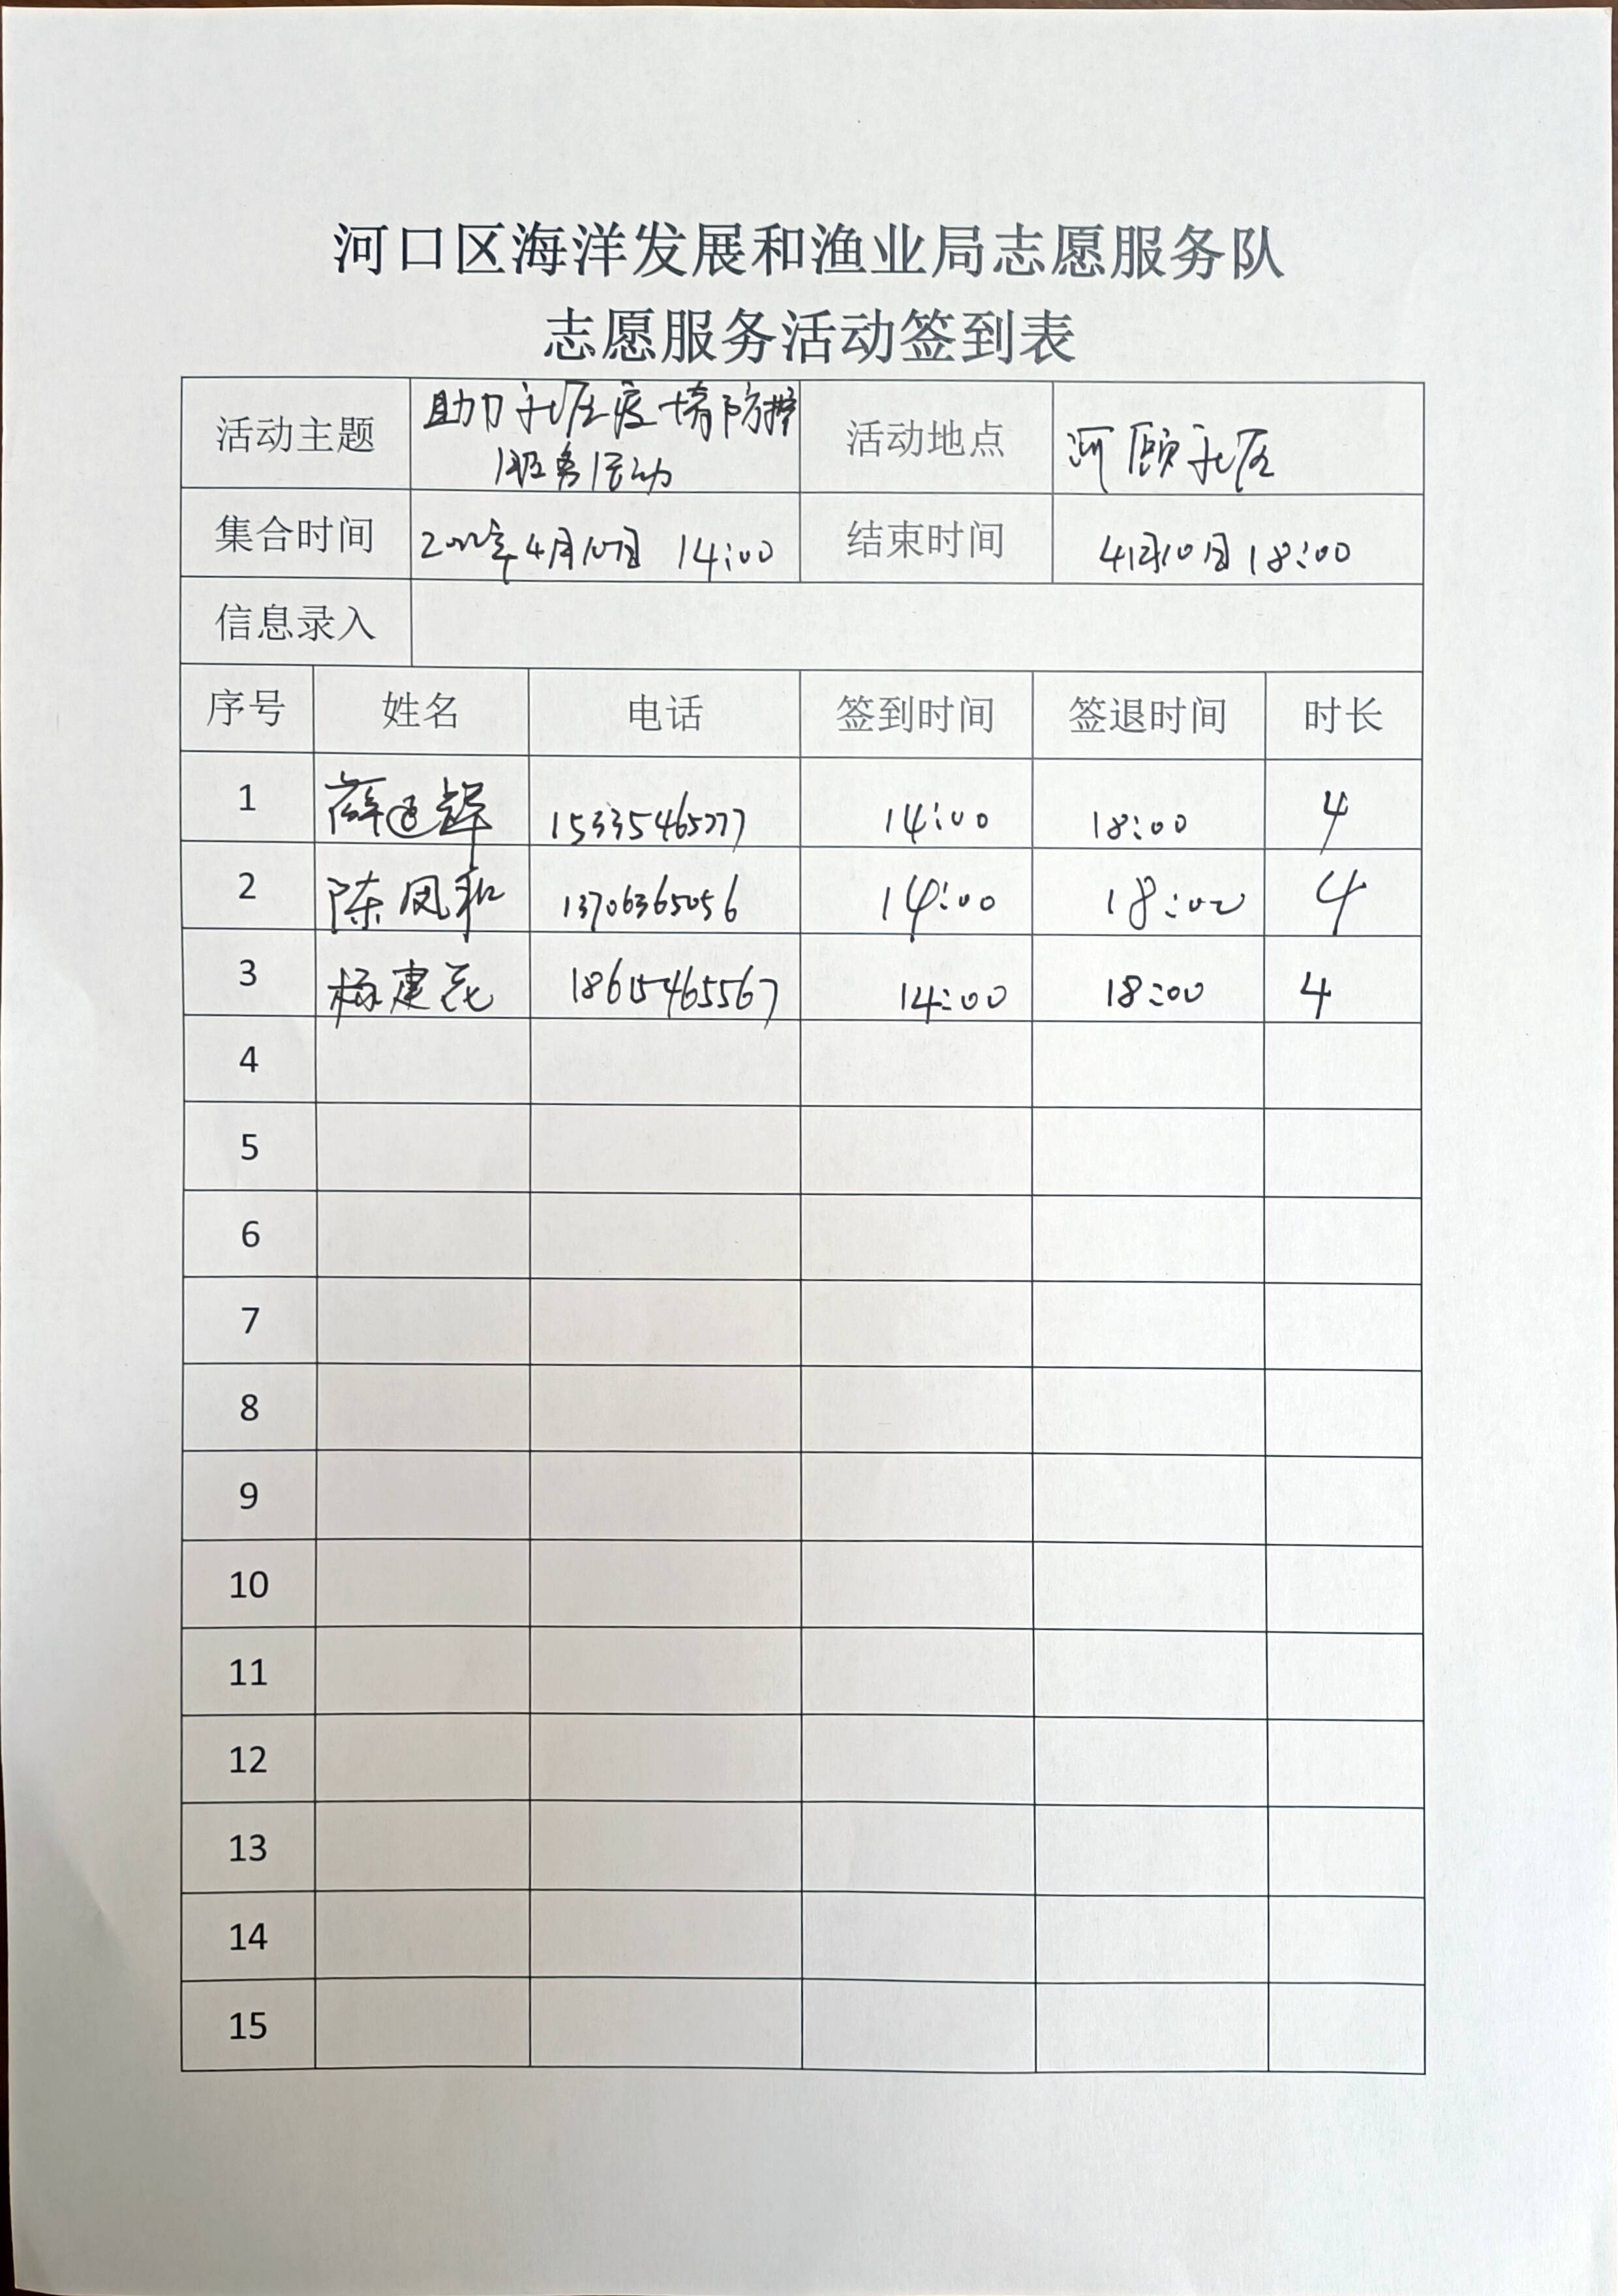 河口区海洋发展和渔业局志愿服务队
志愿服务活动签到表
活动主题 助力社区疫情防控服务活动 活动地点 河颐社区
集合时间 2022年4月10日 14:00 结束时间 4月10日 18:00
信息录入
序号 姓名 电话 签到时间 签退时间 时长
1 薛道辉 15335465777 14:00 18:00 4
2 陈凤和 13706365056 14:00 18:00 4
3 杨建花 18615465567 14:00 18:00 4
4
5
6
7
8
9
10
11
12
13
14
15